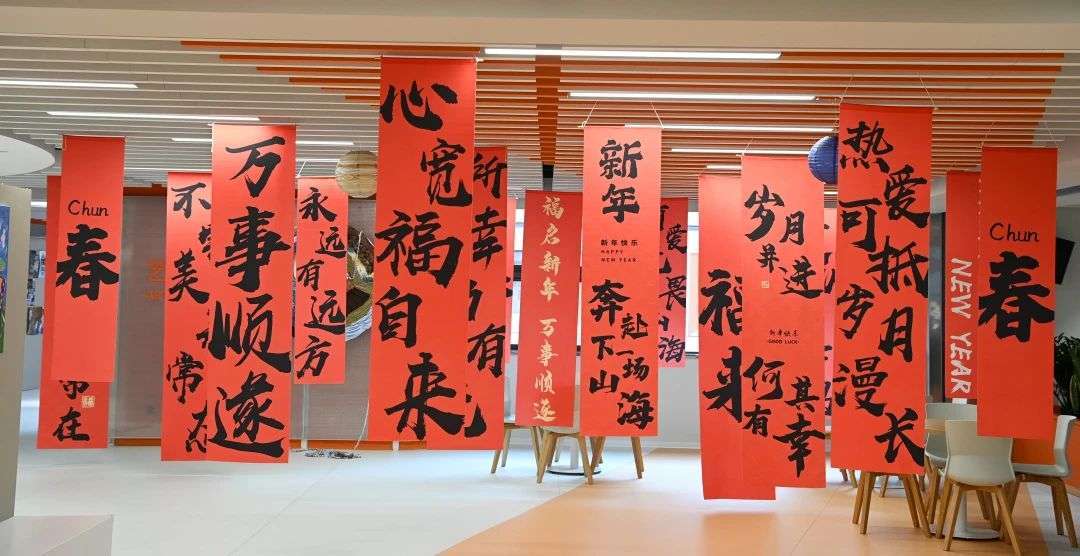 Chun
春
在
不
美
常态
万事顺遂
永远有远方
心宽福自来
所幸
有
福启新年 万事顺遂
新年
新年快乐
HAPPY
NEW YEAR
奔赴
下一场
山海
爱
畏
海
福
岁月
昇进
新年快乐
GOOD LUCK
何其
有幸
热爱
可抵
岁月
漫长
NEW YEAR
Chun
春